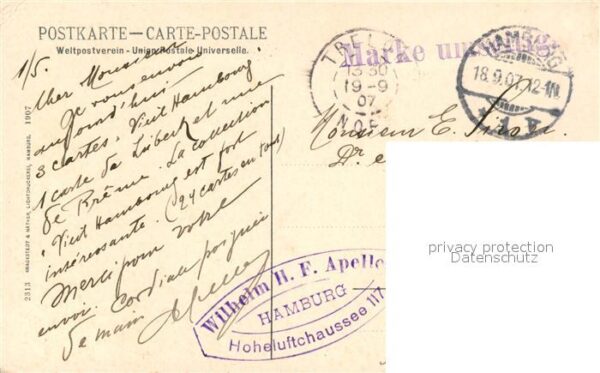 POSTKARTE – CARTE-POSTALE
Weltpostverein - Union Postale Universelle.
1/5.
Cher Monsieur
Je vous envoie
aujourd'hui
3 cartes. Vieil Hambourg
1 carte de Lübeck et une
de Brême. La collection
"Vieil Hambourg est fort
intéressante. (24 cartes en tout)
Merci pour votre
envoi. Cordiale poignée
de main Apelles
2313 KNACKSTEDT & NÄTHER, LICHTDRUCKEREI, HAMBURG. 1907
TRELO
13 30
19-9
07
NOR
Marke un
HAMBURG
18.9.07. 12-1N.
Monsieur E.
Dr
privacy protection
Datenschutz
Wilhelm H. F. Apelle
HAMBURG
Hoheluftchaussee 117